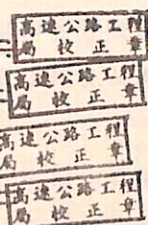 高速公路工程
局校正章
高速公路工程
局校正章
高速公路工程
局校正章
高速公路工程
局校正章